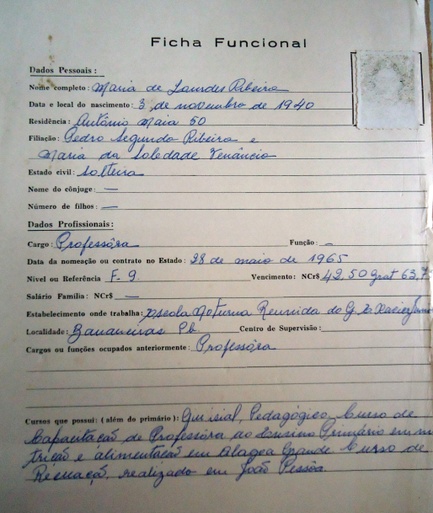 Ficha Funcional
Dados Pessoais :
Nome completo : Maria de Lourdes Ribeiro
Data e local do nascimento : 3 de novembro de 1940
Residência : Antônio Maia 50
Filiação : Pedro Segundo Ribeiro e
Maria da Soledade Venâncio
Estado civil : Solteira
Nome do cônjuge : —
Número de filhos : —
Dados Profissionais :
Cargo : Professôra Função : —
Data da nomeação ou contrato no Estado : 28 de maio de 1965
Nível ou Referência F. 9 Vencimento: NCr$ 42,50 Grat 63,7
Salário Família: NCr$ —
Estabelecimento onde trabalha : Escola Noturna Reunida do G. E. Xavier
Localidade : Bananeiras Pb Centro de Supervisão :
Cargos ou funções ocupados anteriormente : Professôra
Cursos que possui : (além do primário) : Ginasial, Pedagógico, Curso de
Capacitação de Professôra ao Ensino Primário em nu
trição e alimentação em Alagoa Grande Curso de
realizado em João Pessôa